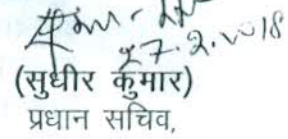 27.2.2018
(सुधीर कुमार)
प्रधान सचिव,